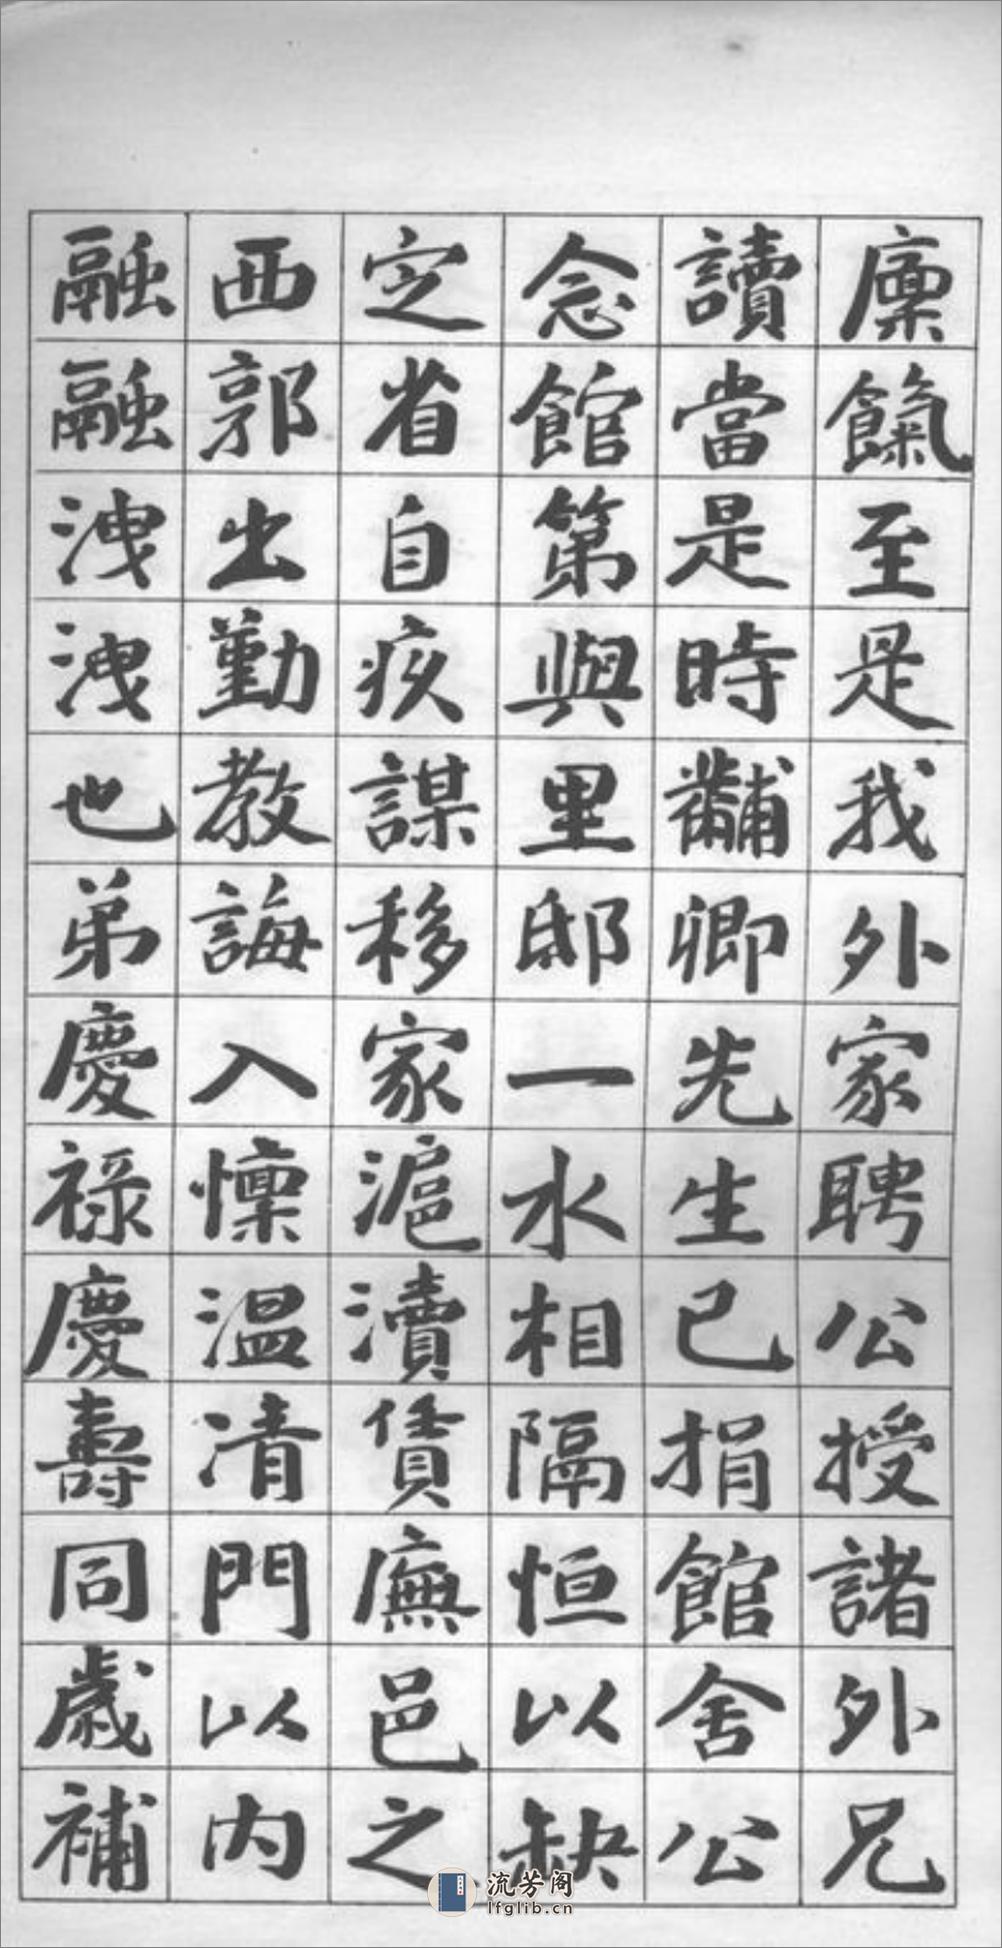 廩餼至是我外家聘公授諸外兄
讀當是時黼卿先生已捐館舍公
念館第與里邸一水相隔恒以缺
定省自疚謀移家滬瀆賃廡邑之
西郭出勤教誨入懍温凊門以内
融融洩洩也弟慶祿慶壽同歲補
流芳阁
lfglib.cn